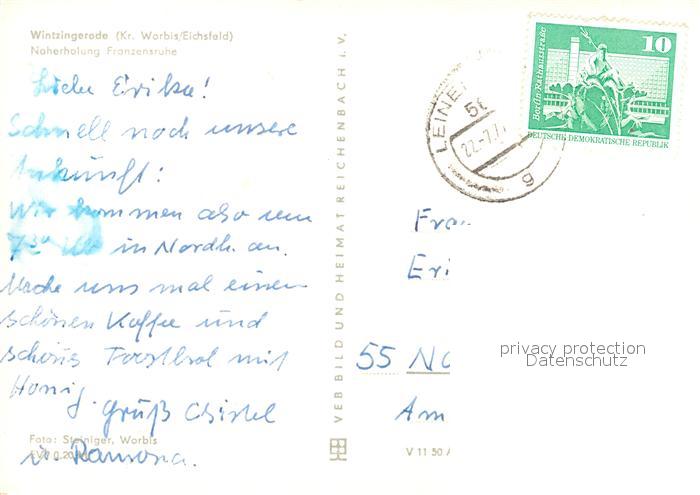 Wintzingerode (Kr. Worbis/Eichsfeld)
Naherholung Franzensruhe
Liebe Erika!
Schnell noch unsere
Ankunft:
Wir kommen also um
7³⁰ Uhr in Nordh. an.
Mache uns mal einen
schönen Kaffee und
schönes Toastbrot mit
Honig
Gruß Christel
u. Ramona.
Foto: Steiniger, Worbis
VEB BILD UND HEIMAT REICHENBACH i. V.
V 11 50
LEINE
22.-7.7
g
10
Berlin Rathausstraße
DEUTSCHE DEMOKRATISCHE REPUBLIK
Fra
Eri
55 No
Am
privacy protection
Datenschutz